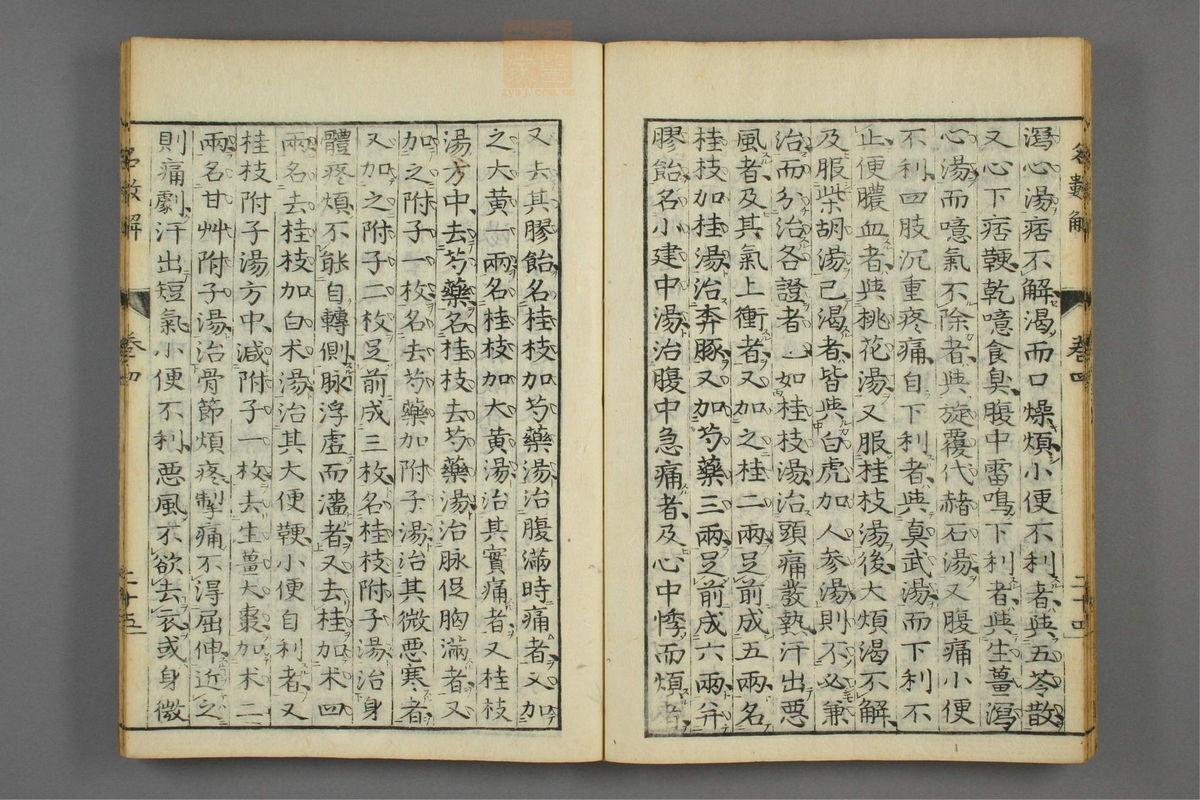 瀉心湯痞不解渴而口燥煩小便不利者與五苓散
又心下痞鞕乾噫食臭腹中雷鳴下利者與生薑瀉
心湯而噫氣不除者與旋覆代赭石湯又腹痛小便
不利四肢沉重疼痛自下利者與真武湯而下利不
止便膿血者與桃花湯又服桂枝湯後大煩渴不解
及服柴胡湯已渴者皆與白虎加人參湯則不必兼
治而分治各證者如桂枝湯治頭痛發熱汗出惡
風者及其氣上衝者又加之桂二兩足前成五兩名
桂枝加桂湯治奔豚又加芍藥三兩足前成六兩并
膠飴名小建中湯治腹中急痛者及心中悸而煩者
卷四
二十四
又去其膠飴名桂枝加芍藥湯治腹滿時痛者又加
之大黃一兩名桂枝加大黃湯治其實痛者又桂枝
湯方中去芍藥名桂枝去芍藥湯治脉促胸滿者又
加之附子一枚名去芍藥加附子湯治其微惡寒者
又加之附子二枚足前成三枚名桂枝附子湯治身
體疼煩不能自轉側脉浮虛而濇者又去桂加朮四
兩名去桂枝加白朮湯治其大便鞕小便自利者又
桂枝附子湯方中減附子一枚去生薑大棗加朮二
兩名甘艸附子湯治骨節煩疼掣痛不得屈伸近之
則痛劇汗出短氣小便不利惡風不欲去衣或身微
解
卷四
二十五